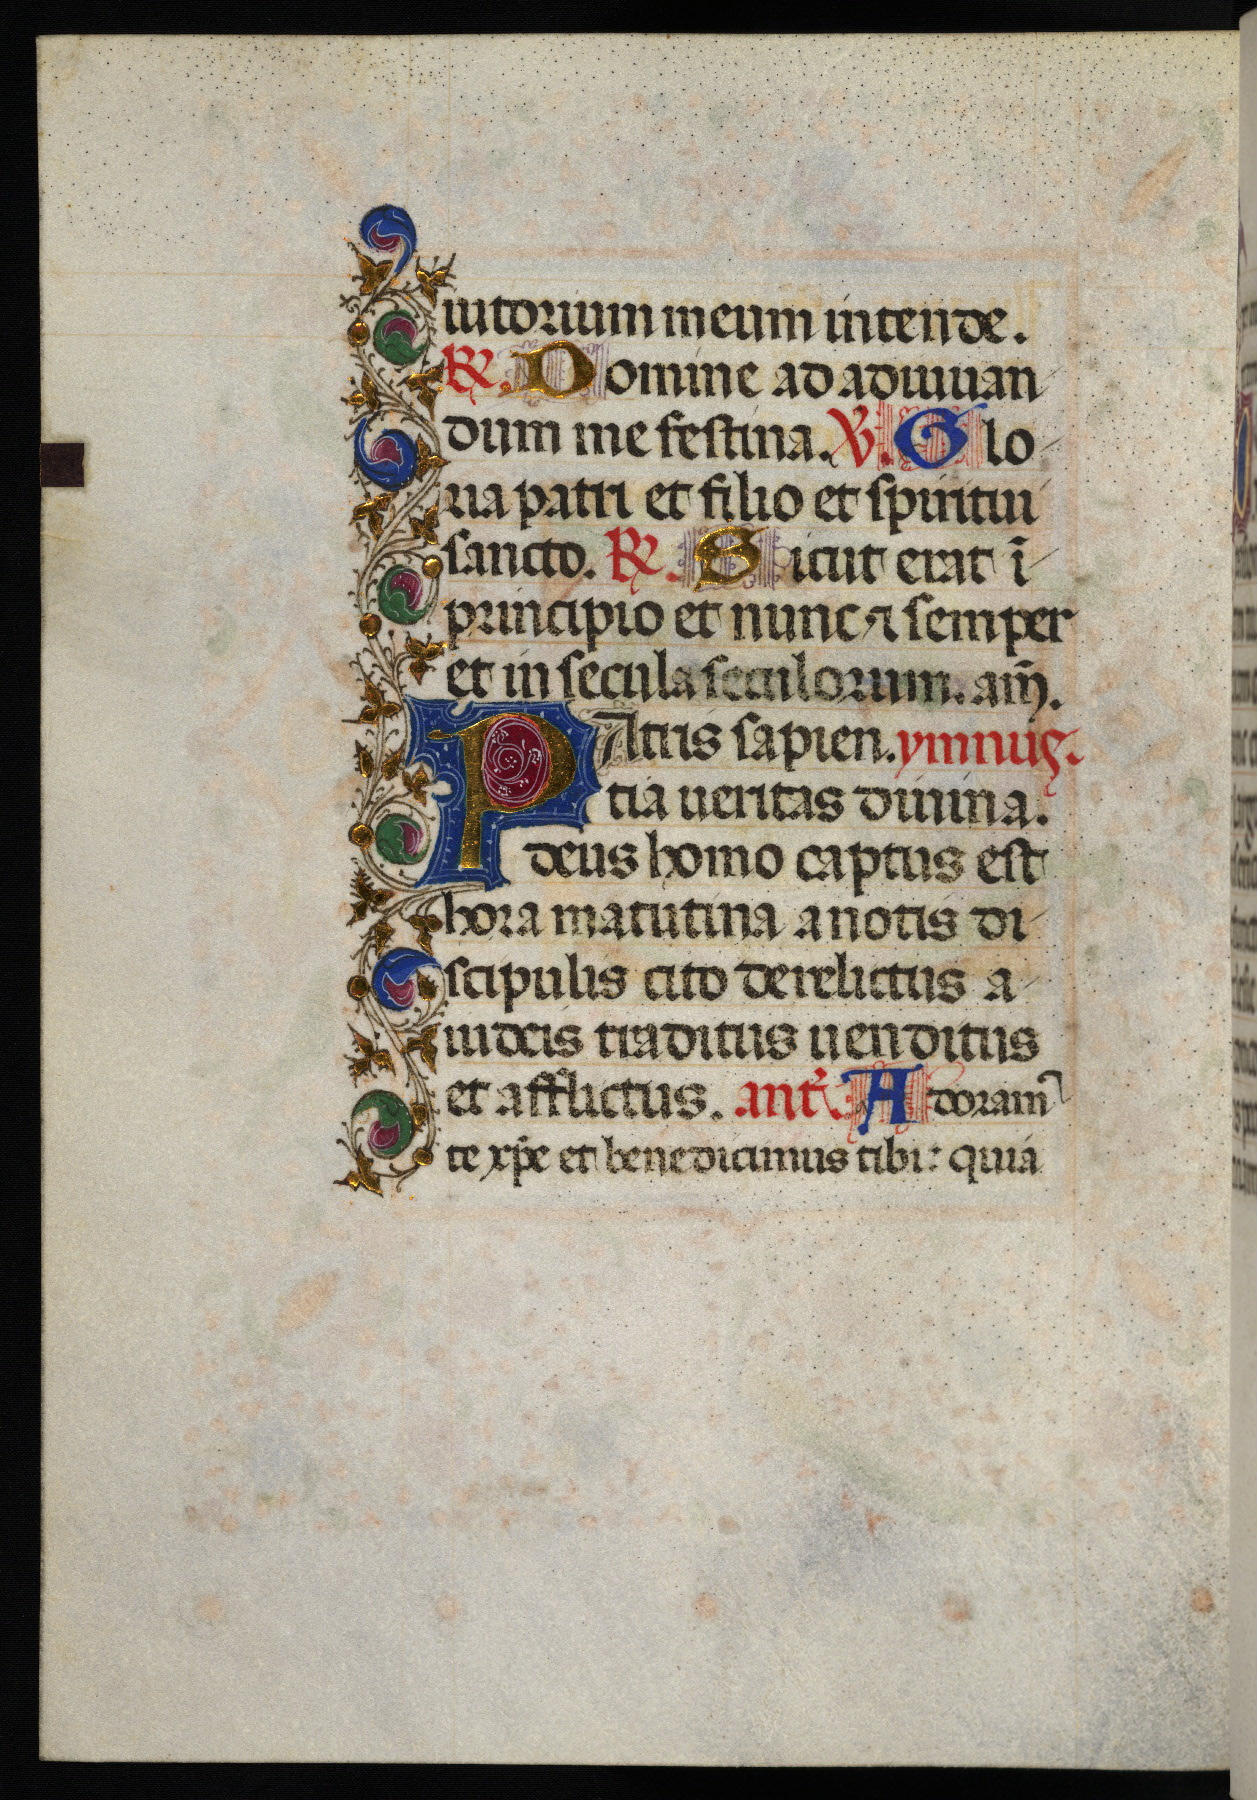 iutorium meum intende.
℟. Domine ad adiuuan
dum me festina. ℣. Glo
ria patri et filio et spiritui
sancto. ℟. Sicut erat ī
principio et nunc ⁊ semper
et in secula seculorum. am̄.
PAtris sapien. ymnus.
tia ueritas diuina.
deus homo captus est
hora matutina a notis di
scipulis cito derelictus a
iudeis traditus uenditus
et afflictus. ant̄. Adoram
te xp̄e et benedicimus tibi: quia